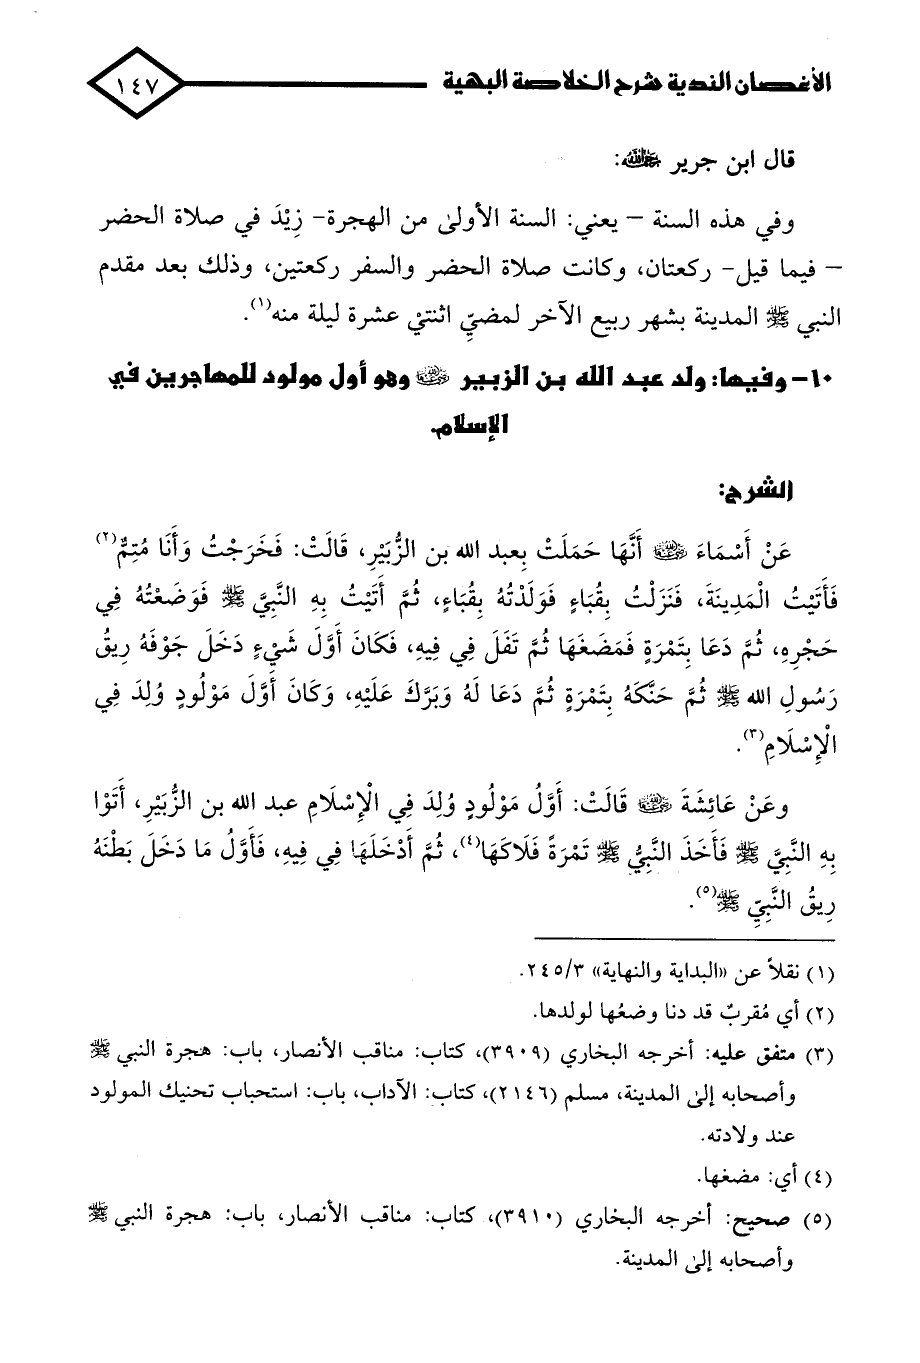 الأغصان الندية شرح الخلاصة البهية
١٤٧
قال ابن جرير رحمه الله:
وفي هذه السنة – يعني: السنة الأولىٰ من الهجرة- زِيْدَ في صلاة الحضر
– فيما قيل- ركعتان، وكانت صلاة الحضر والسفر ركعتين، وذلك بعد مقدم
النبي ﷺ المدينة بشهر ربيع الآخر لمضيِّ اثنتيْ عشرة ليلة منه(١).
١٠- وفيها: ولد عبد الله بن الزبير رضي الله عنه وهو أول مولود للمهاجرين في
الإسلام.
الشرح:
عَنْ أَسْمَاءَ رضي الله عنها أَنَّهَا حَمَلَتْ بِعبد الله بن الزُّبَيْرِ، قَالَتْ: فَخَرَجْتُ وَأَنَا مُتِمٌّ(٢)
فَأَتَيْتُ الْمَدِينَةَ، فَنَزَلْتُ بِقُبَاءٍ فَوَلَدْتُهُ بِقُبَاءٍ، ثُمَّ أَتَيْتُ بِهِ النَّبِيَّ ﷺ فَوَضَعْتُهُ فِي
حَجْرِهِ، ثُمَّ دَعَا بِتَمْرَةٍ فَمَضَغَهَا ثُمَّ تَفَلَ فِي فِيهِ، فَكَانَ أَوَّلَ شَيْءٍ دَخَلَ جَوْفَهُ رِيقُ
رَسُولِ الله ﷺ ثُمَّ حَنَّكَهُ بِتَمْرَةٍ ثُمَّ دَعَا لَهُ وَبَرَّكَ عَلَيْهِ، وَكَانَ أَوَّلَ مَوْلُودٍ وُلِدَ فِي
الْإِسْلَامِ(٣).
وعَنْ عَائِشَةَ رضي الله عنها قَالَتْ: أَوَّلُ مَوْلُودٍ وُلِدَ فِي الْإِسْلَامِ عبد الله بن الزُّبَيْرِ، أَتَوْا
بِهِ النَّبِيَّ ﷺ فَأَخَذَ النَّبِيُّ ﷺ تَمْرَةً فَلَاكَهَا(٤)، ثُمَّ أَدْخَلَهَا فِي فِيهِ، فَأَوَّلُ مَا دَخَلَ بَطْنَهُ
رِيقُ النَّبِيِّ ﷺ(٥).
(١) نقلاً عن «البداية والنهاية» ٢٤٥/٣.
(٢) أي مُقربٌ قد دنا وضعُها لولدها.
(٣) متفق عليه: أخرجه البخاري (٣٩٠٩)، كتاب: مناقب الأنصار، باب: هجرة النبي ﷺ
وأصحابه إلىٰ المدينة، مسلم (٢١٤٦)، كتاب: الآداب، باب: استحباب تحنيك المولود
عند ولادته.
(٤) أي: مضغها.
(٥) صحيح: أخرجه البخاري (٣٩١٠)، كتاب: مناقب الأنصار، باب: هجرة النبي ﷺ
وأصحابه إلىٰ المدينة.